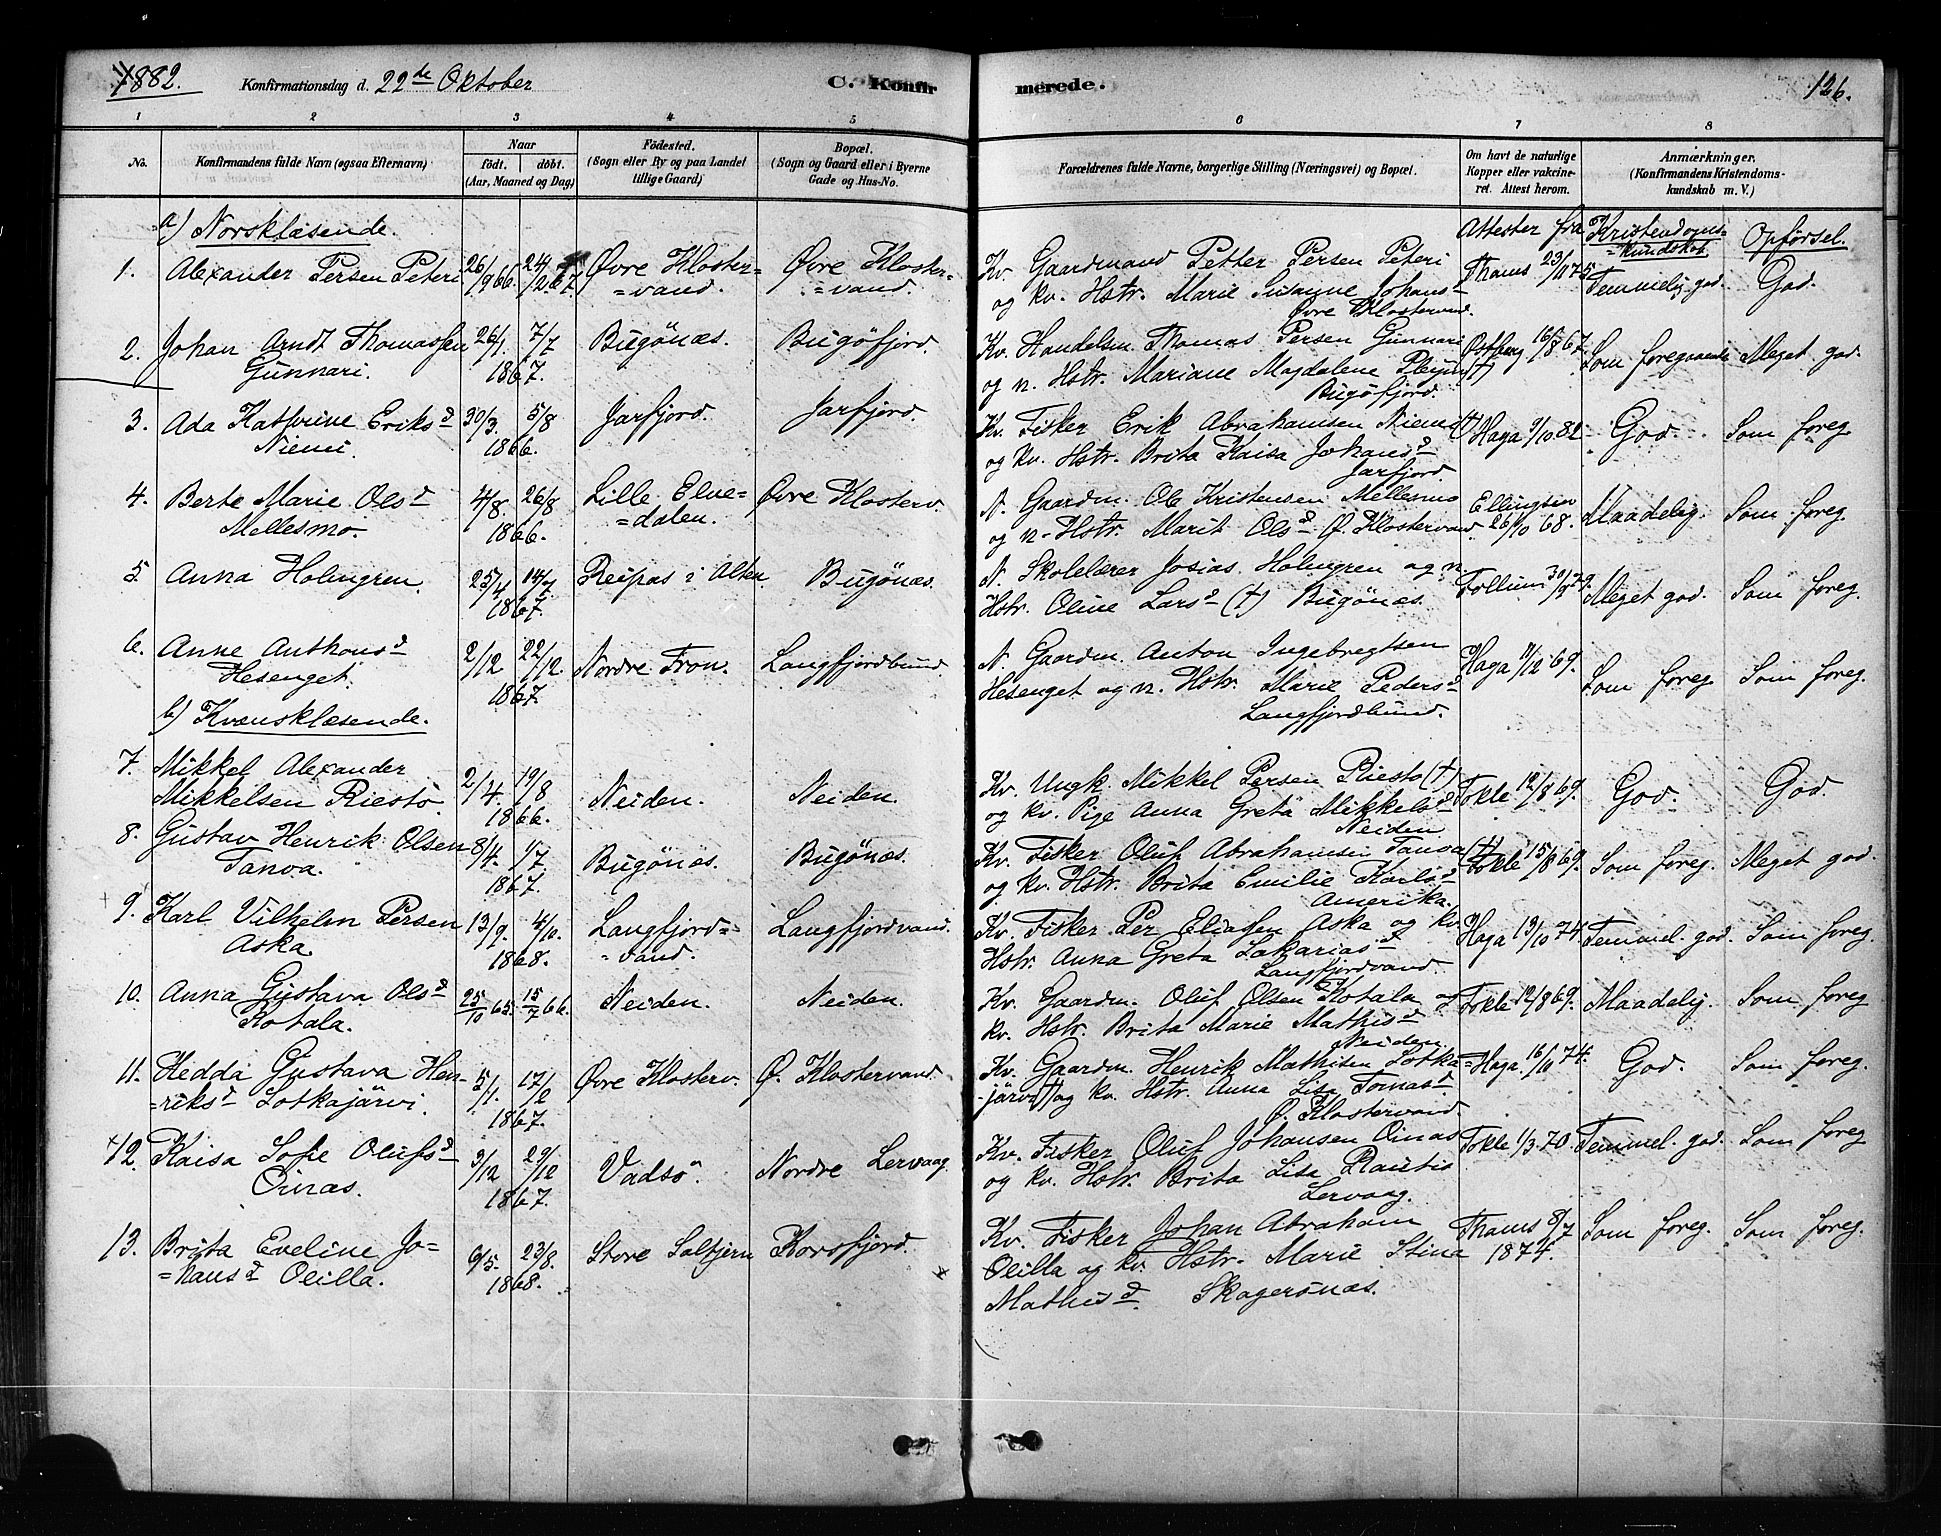 1882. Konfirmationsdag d. 22de Oktober C. Konfir merede. 126.
1 2 3 4 5 6 7 8
No. Konfirmandens fulde Navn (ogsaa Efternavn) Naar födt. döbt. (Aar, Maaned og Dag) Födested. (Sogn eller By og paa Landet tillige Gaard) Bopæl. (Sogn og Gaard eller i Byerne Gade og Hus-No. Forældrenes fulde Navne, borgerlige Stilling (Næringsvei) og Bopæl. Om havt de naturlige Kopper eller vakcineret. Attest herom. Anmærkninger. (Konfirmandens Kristendomskundskab m. V.)
a) Norsklæsende. Attester fra Kristendoms= =kundskab Opførsel.
1. Alexander Persen Peteri 26/9 66. 24/12 67. Øvre Kloster= Øvre Kloster= Kv. Gaardmand Petter Persen Peteri Thams 23/11 75 Temmelig god. God.
=vand. =vand. og kv. Hstr. Marie Susanne Johans-
Øvre Klostervand.
2. Johan Arndt Thomassen 26/1. 7/7 Bugönæs. Bugöfjord. Kv. Handelsm. Thomas Persen Gunnari Østberg 16/8 67. Som foregaaende Meget god.
Gunnari. 1867. og n. Hstr. Mariane Magdalene Pleym (†)
Bugöfjord.
3. Ada Kathrine Eriksd 30/3. 5/8 Jarfjord. Jarfjord. Kv. Fisker Erik Abrahamsen Niemi (†) Haga 9/10 82 God. Som foreg.
Niemi. 1866. og kv. Hstr. Brita Kaisa Johansd
Jarfjord.
4. Berte Marie Olsd 4/8. 26/8 Lille Elve= Øvre Klosterv. N. Gaardm. Ole Kristensen Mellesmo Ellingsen Maadelig. Som foreg.
Mellesmo. 1866. =dalen. og n. Hstr. Marit Olsd Ø. Klostervand. 26/10 68.
5. Anna Holmgren. 25/4 14/7 Reipas i Alten Bugönæs. N. Skolelærer Josias Holmgren og n. Follum 30/9 79. Meget god. Som foreg.
1867. Hstr. Oline Larsd (†) Bugönæs.
6. Anne Anthonsd 2/12 22/12. Nordre Fron. Langfjordbund. N. Gaardm. Anton Ingebregtsen Haga 11/12 69. Som foreg. Som foreg.
Hesenget. 1867. Hesenget og n. Hstr. Marie Pedersd
Langfjordbund.
b) Kvænsklæsende.
7. Mikkel Alexander 2/4. 19/8 Neiden. Neiden. Kv. Ungk. Mikkel Persen Riesto (†) Fokle 12/8 69. God. God.
Mikkelsen Riesto. 1866. og kv. Pige Anna Greta Mikkelsd
Neiden.
8. Gustav Henrik Olsen 8/4. 1/7 Bugönæs. Bugönæs. Kv. Fisker Oluf Abrahamsen Tanoa (†) Fokle 15/8 69. Som foreg. Meget god.
Tanoa. 1867. og kv. Hstr. Brita Emilie Karlsd
Amerika.
9. Karl Vilhelm Persen 13/9. 4/10. Langfjord= Langfjordvand. Kv. Fisker Per Eliassen Aska og kv. Haga 13/10 74. Temmel. god. Som foreg.
Aska. 1868. =vand. Hstr. Anna Greta Sakariasd
Langfjordvand.
10. Anna Gustava Olsd 25/10 65. 15/7 66. Neiden. Neiden. Kv. Gaardm. Oluf Olsen Kotala og Fokle 12/8 69. Maadelig. Som foreg.
Kotala. kv. Hstr. Brita Marie Mathisd
Neiden.
11. Hedda Gustava Hen- 5/1. 17/2 Øvre Klosterv. Ø. Klostervand. Kv. Gaardm. Henrik Mathisen Lotka= Haga 16/11 74. God. Som foreg.
=riksd Lotkajärvi. 1867. -järvi (†) og kv. Hstr. Anna Lisa Tomasd
Ø. Klostervand.
12. Kaisa Sofie Olufsd 3/12 29/12 Vadsö. Nordre Lervaag Kv. Fisker Oluf Johansen Oinas Fokle 1/3 70. Temmel. god. Som foreg.
Oinas. 1867. og kv. Hstr. Brita Lisa Rautio
Lervaag.
13. Brita Eveline Jo= 9/5. 23/8. Store Saltjern Korsfjord. Kv. Fisker Johan Abraham Thams 8/7 Som foreg. Som foreg.
=hansd Olilla. 1868. Olilla og kv. Hstr. Marie Stina 1874.
Mathisd. Skagerönæs.